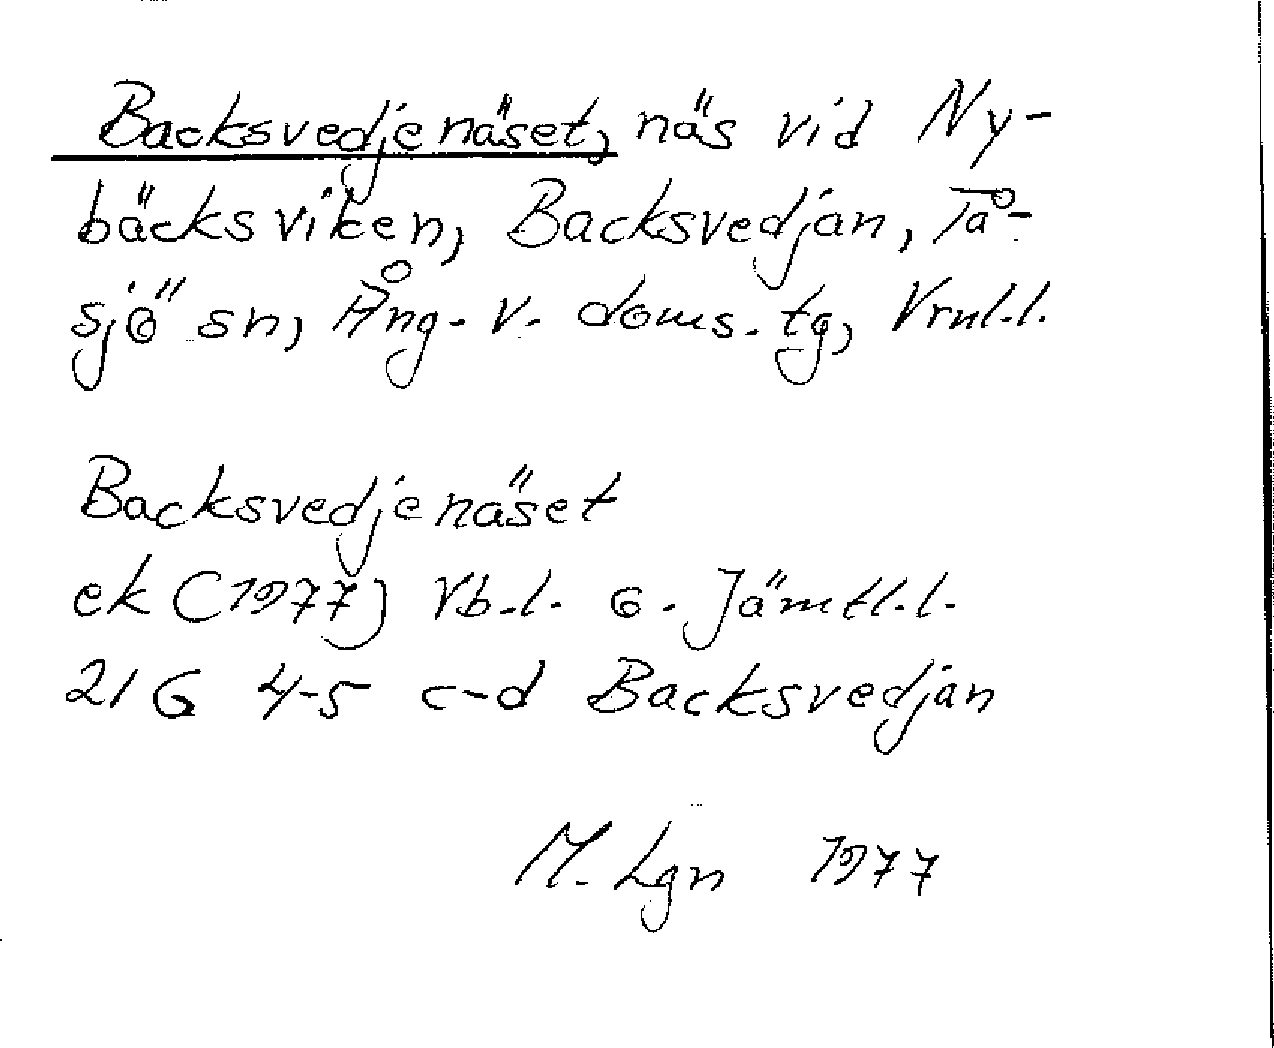 Backsvedjenäset, näs vid Ny-
bäcksviken, Backsvedjan, Tå-
sjö sn, Ång. v. doms. tg, Vrnl.l.
Backsvedjenäset
ek (1977) Vb.l. o. Jämtl.l.
21G 4-5 c-d Backsvedjan
M. Lgn 1977